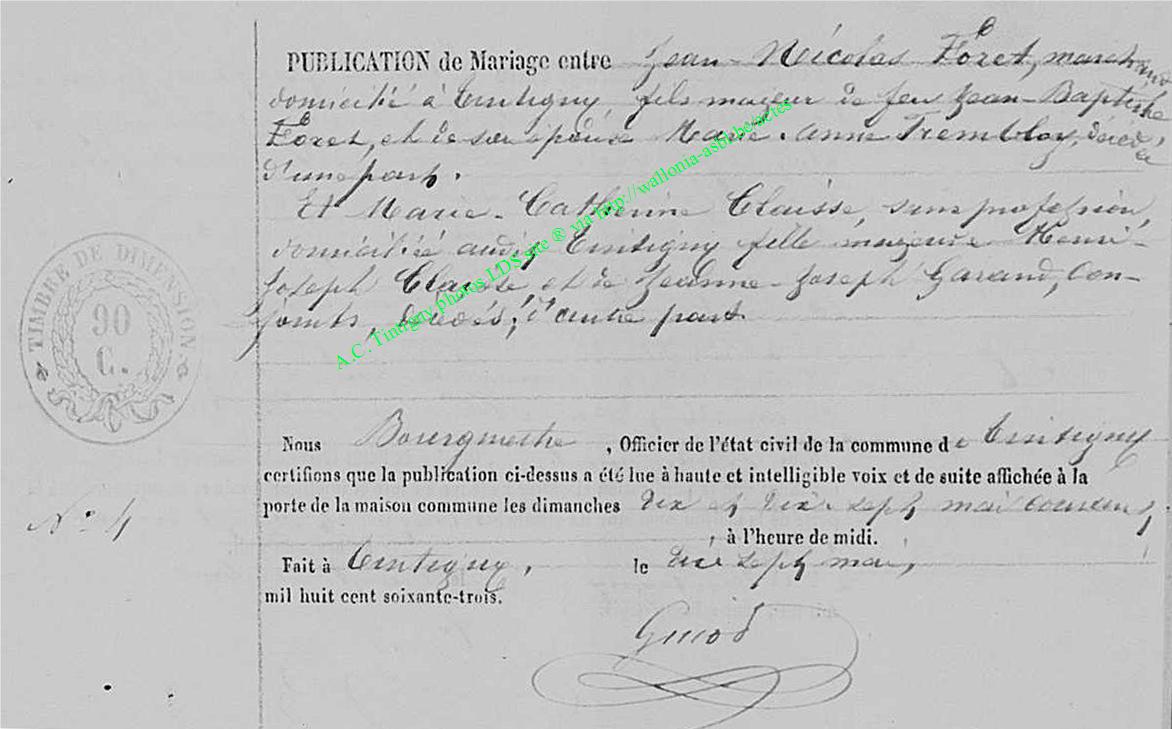 PUBLICATION de Mariage entre Jean-Nicolas Foret, marchand
domicilié à Tintigny fils majeur de feu Jean-Baptiste
Foret, et de son épouse Marie-Anne Trembloy, décédée
d'une part.
Et Marie-Catherine Claisse, sans profession,
domiciliée audit Tintigny fille majeure Henri-
Joseph Claisse et de Jeanne-Joseph Garand, con-
joints, d'autre part
TIMBRE DE DIMENSION
90
C.
A.C. Tintigny photos LDS site ® via http://wallonia-asbl.be/actes
Nous Bourgmestre, Officier de l'état civil de la commune de Tintigny
certifions que la publication ci-dessus a été lue à haute et intelligible voix et de suite affichée à la
porte de la maison commune les dimanches dix et dix-sept mai courant,
, à l'heure de midi.
N° 4
Fait à Tintigny, le dix sept mai,
mil huit cent soixante-trois.